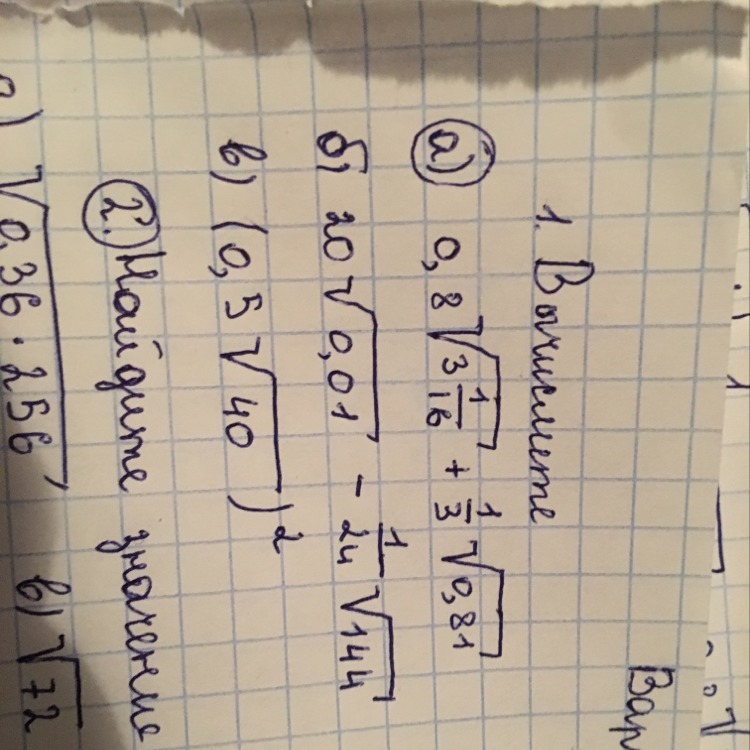 Вар
1. Вычислите
а) 0,8√(3 1/16) + 1/3 √0,81
б) 20√0,01 - 1/24 √144
в) (0,5√40)²
2. Найдите значение
а) √(0,36 · 256), в) √72